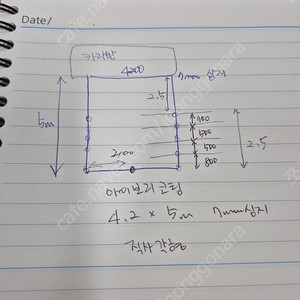 Date/
카라반
4200
7mm 심지
5m
2.5
700
500
500
800
2.5
2100
아이보리 코팅
4.2 × 5m 7mm심지
직사각형